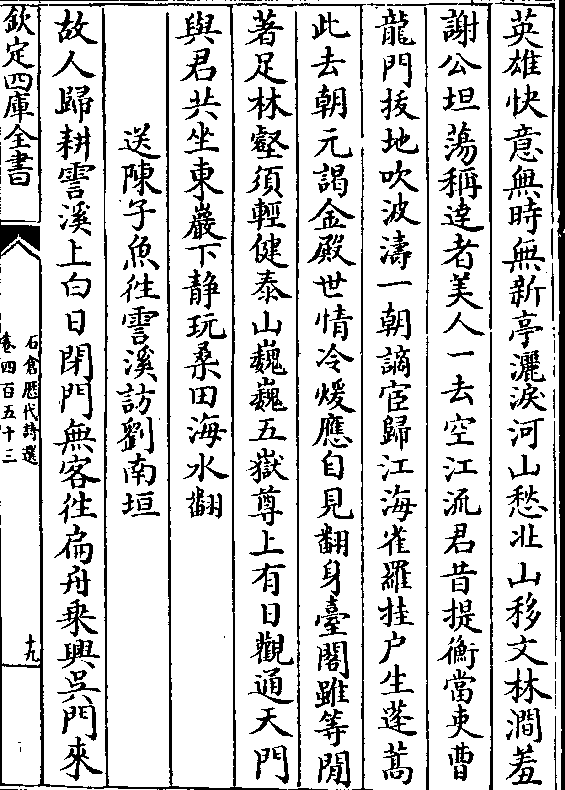 英雄快意無時無新亭灑淚河山愁北山移文林澗羞
謝公坦蕩稱達者美人一去空江流君昔提衡當吏曹
龍門拔地吹波濤一朝謫宦歸江海雀羅挂户生蓬蒿
此去朝元謁金殿世情冷煖應自見翻身臺閣雖等閒
著足林壑須輕健泰山巍巍五嶽尊上有日觀通天門
與君共坐東巖下静玩桑田海水翻
送陳子魚徃霅溪訪劉南垣
故人歸耕霅溪上白日閉門無客徃扁舟乗興吳門來
欽定四庫全書
石倉歴代詩選
卷四百五十三
十九